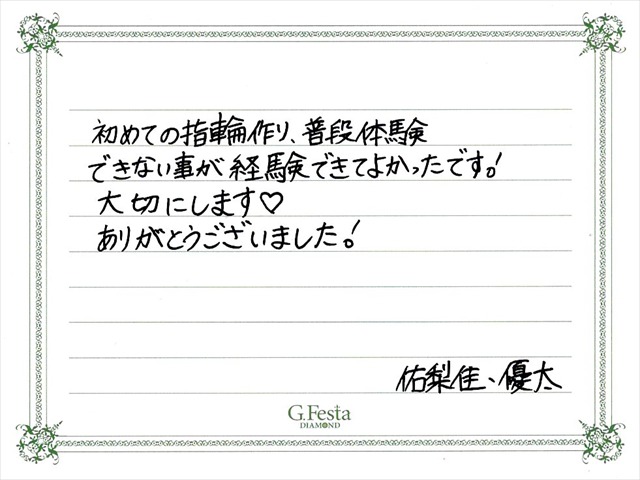 初めての指輪作り、普段体験
できない事が経験できてよかったです!
大切にします♡
ありがとうございました!
佑梨佳、優太
G.Festa
DIAMOND